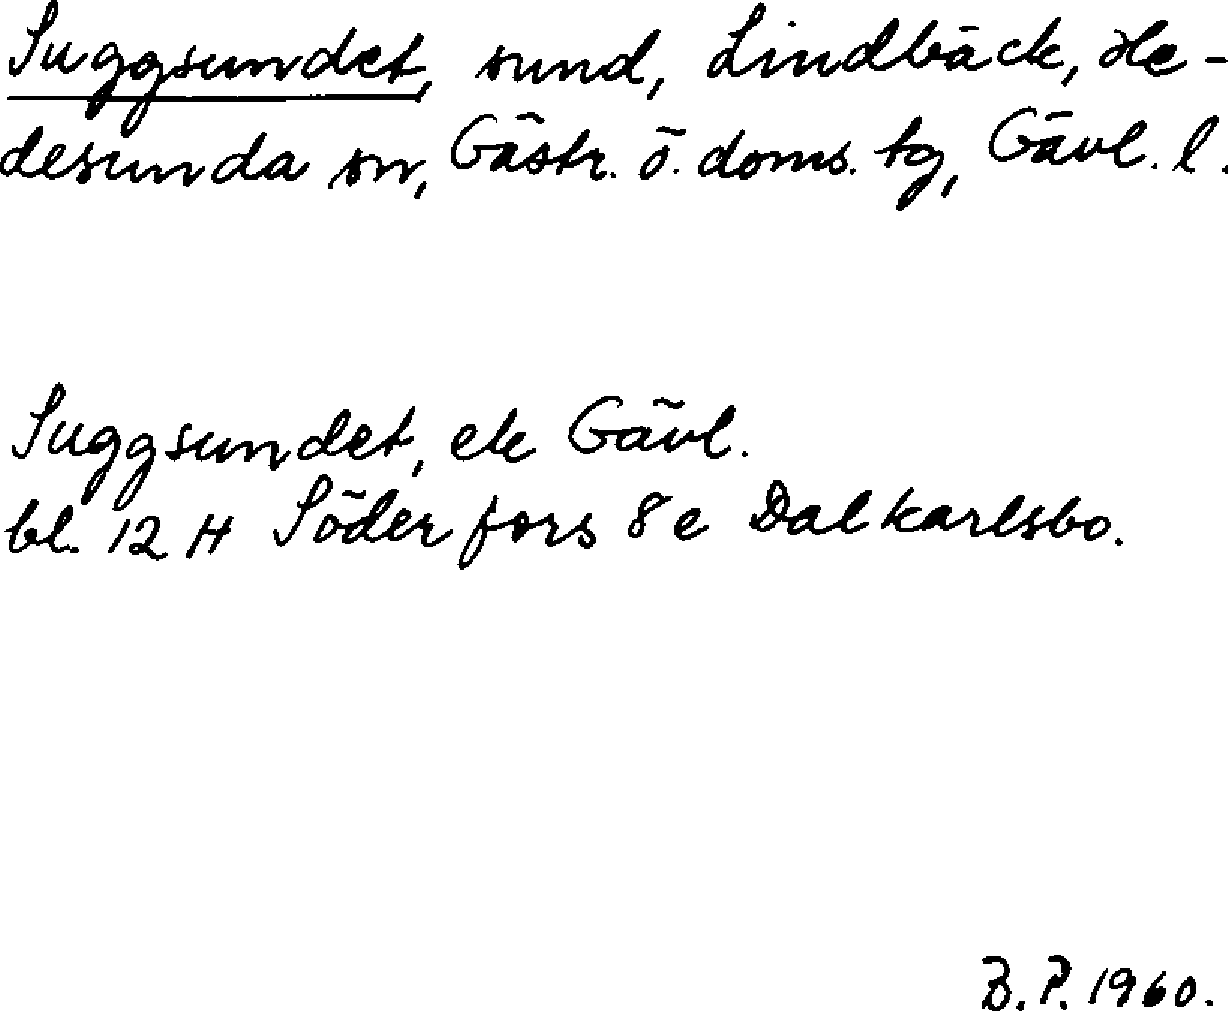 Suggsundet, sund, Lindbäck, He-
desunda sn, Gästr. ö. doms. tg, Gävl. l.
Suggsundet, ek Gävl.
bl. 12 H Söderfors 8 e Dalkarlsbo.
B. P. 1960.